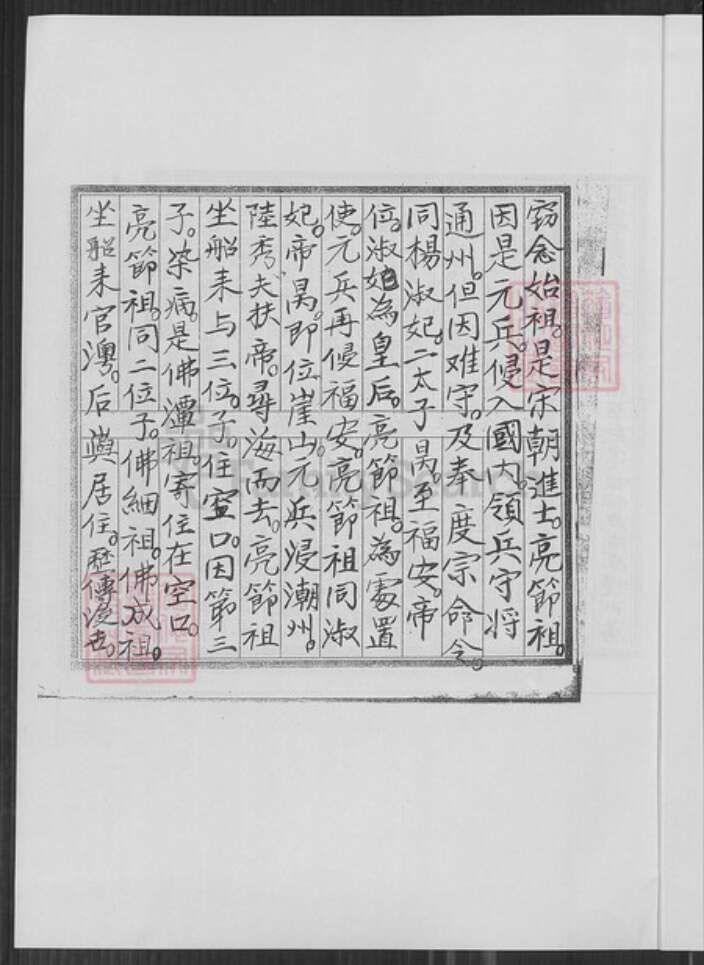 窃念始祖。是宋朝進士。亮節祖。
因是元兵。侵入國内。領兵守将
通州。但因难守。及奉 度宗命令。
同楊淑妃。二太子昺。至福安。帝
位。淑妃為皇后。亮節祖。為處置
使。元兵再侵福安。亮節祖同淑
妃。帝昺。即位崖山。元兵浸潮州。
陸秀夫扶帝。尋海而去。亮節祖
坐船来与三位。子。住空口。因第三
子。染病。是佛潭祖。寄住在空口。
亮節祖。同二位子。佛細祖。佛成祖。
坐船来官澳。后與居住。歷傳後世。